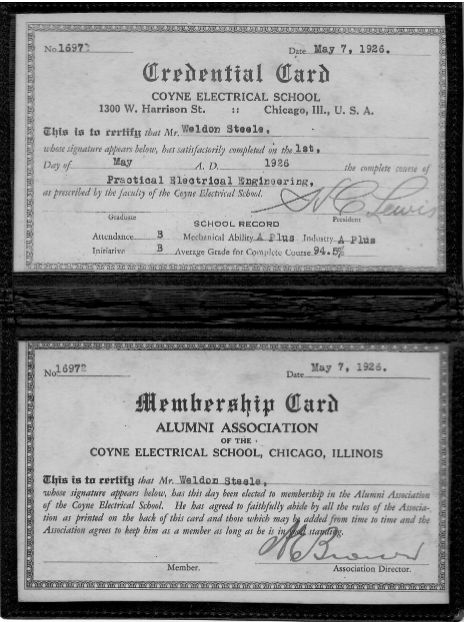 No. 16972 Date May 7, 1926.
Credential Card
COYNE ELECTRICAL SCHOOL
1300 W. Harrison St. :: Chicago, Ill., U. S. A.
This is to certify that Mr. Weldon Steele,
whose signature appears below, has satisfactorily completed on the 1st,
Day of May A. D. 1926 the complete course of
Practical Electrical Engineering,
as prescribed by the faculty of the Coyne Electrical School.
H C Lewis
Graduate President
SCHOOL RECORD
Attendance B Mechanical Ability A Plus Industry A Plus
Initiative B Average Grade for Complete Course 94.5%
No. 16972 Date May 7, 1926.
Membership Card
ALUMNI ASSOCIATION
OF THE
COYNE ELECTRICAL SCHOOL, CHICAGO, ILLINOIS
This is to certify that Mr. Weldon Steele,
whose signature appears below, has this day been elected to membership in the Alumni Association
of the Coyne Electrical School. He has agreed to faithfully abide by all the rules of the Associa-
tion as printed on the back of this card and those which may be added from time to time and the
Association agrees to keep him as a member as long as he is in good standing.
Member. Association Director.